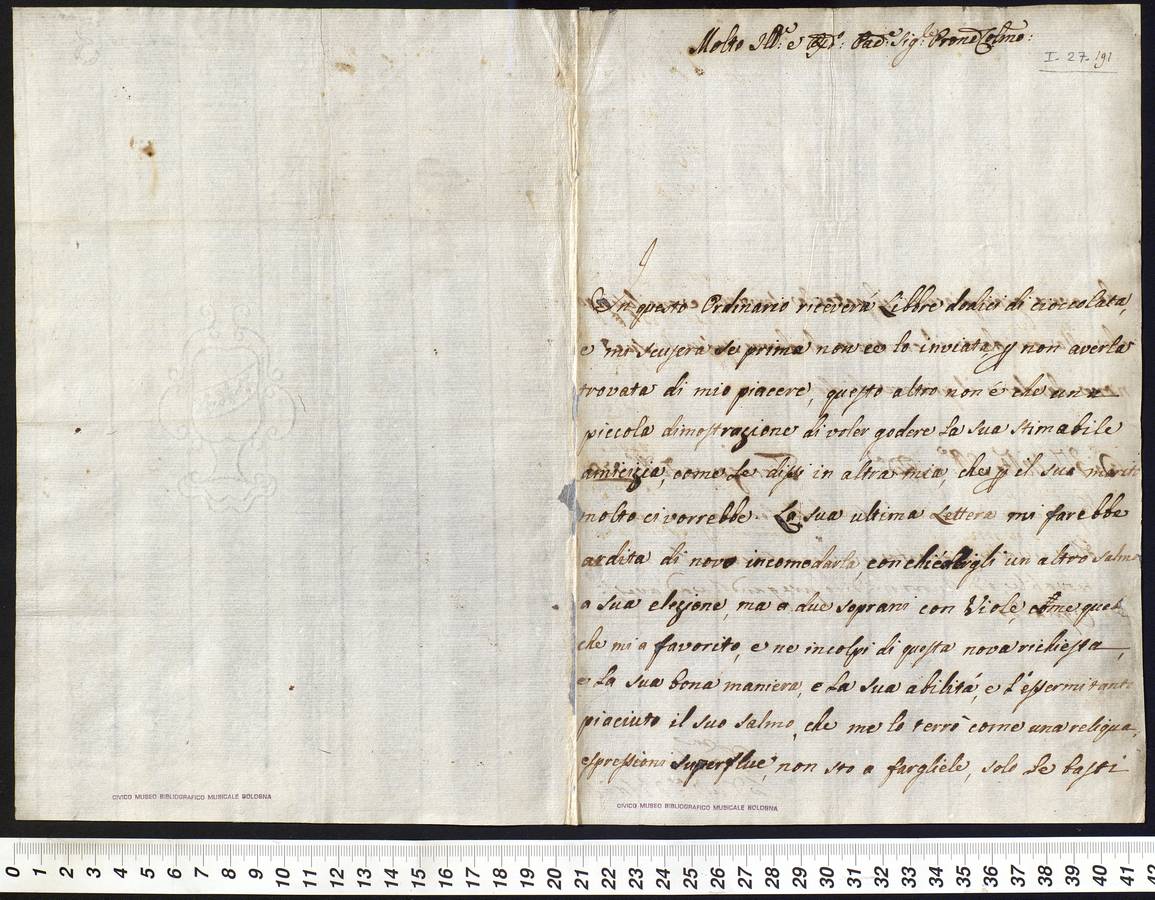 Molto Ill.re e Pad.e Sig.re Prone Colmo:
I-27-191
In questo Ordinario riceverá Libbre dodici di cioccolata,
e mi scuserá se prima non ce lo inviata, p non averla
trovata di mio piacere, questo altro non é che una
piccola dimostrazione di voler godere La sua stimabile
amicizia, come Le dissi in altra mia, che p il suo merito
molto ci vorrebbe. La sua ultima Lettera mi farebbe
ardita di novo incomodarla, con chiédergli un altro salmo
a sua elezione, ma a due soprani con Viole, come quel
che mi a favorito, e ne incolpi di questa nova richiesta,
e La sua bona maniera, e La sua abilitá, e l'essermi tanto
piaciuto il suo salmo, che me lo terrò come una reliqua,
espressioni superflue, non sto a fargliele, solo Le basti
CIVICO MUSEO BIBLIOGRAFICO MUSICALE BOLOGNA
CIVICO MUSEO BIBLIOGRAFICO MUSICALE BOLOGNA
0 1 2 3 4 5 6 7 8 9 10 11 12 13 14 15 16 17 18 19 20 21 22 23 24 25 26 27 28 29 30 31 32 33 34 35 36 37 38 39 40 41 42